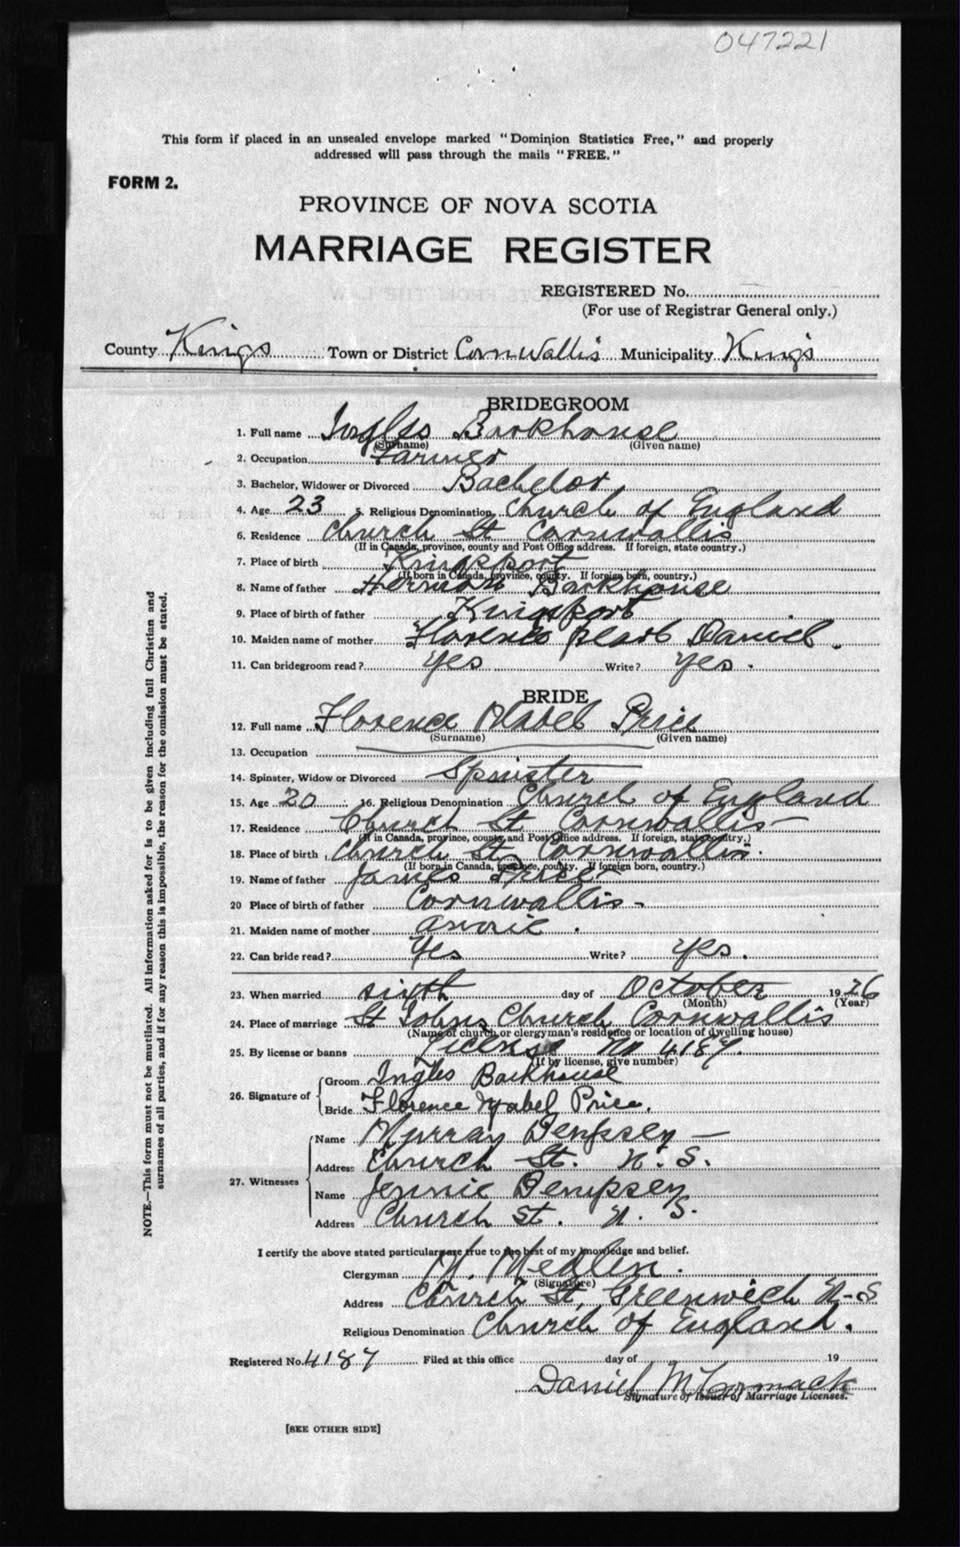 047221
This form if placed in an unsealed envelope marked "Dominion Statistics Free," and properly
addressed will pass through the mails "FREE."
FORM 2.
PROVINCE OF NOVA SCOTIA
MARRIAGE REGISTER
REGISTERED No.
(For use of Registrar General only.)
County Kings Town or District Cornwallis Municipality Kings
BRIDEGROOM
1. Full name Ingles Barkhouse
(Surname) (Given name)
2. Occupation Farmer
3. Bachelor, Widower or Divorced Bachelor
4. Age 23 5. Religious Denomination Church of England
6. Residence Church St Cornwallis
(If in Canada, province, county and Post Office address. If foreign, state country.)
7. Place of birth Kingsport
(If born in Canada, province, county. If foreign born, country.)
8. Name of father Herman Barkhouse
9. Place of birth of father Kingsport
10. Maiden name of mother Florence Pearl Daniel.
11. Can bridegroom read? Yes Write? Yes.
BRIDE
12. Full name Florence Mabel Price
(Surname) (Given name)
13. Occupation
14. Spinster, Widow or Divorced Spinster
15. Age 20 16. Religious Denomination Church of England
17. Residence Church St Cornwallis-
(If in Canada, province, county and Post Office address. If foreign, state country.)
18. Place of birth Church St, Cornwallis.
(If born in Canada, province, county. If foreign born, country.)
19. Name of father James Price
20 Place of birth of father Cornwallis-
21. Maiden name of mother Annie.
22. Can bride read? Yes Write? Yes.
23. When married sixth day of October 1926
(Month) (Year)
24. Place of marriage St Johns Church Cornwallis
(Name of church or clergyman's residence or location of dwelling house)
25. By license or banns License No 4187.
(If by license, give number)
26. Signature of
Groom Ingles Barkhouse
Bride Florence Mabel Price.
27. Witnesses
Name Murray Dempsey-
Address Church St. N. S.
Name Jennie Dempsey
Address Church St. N. S.
I certify the above stated particulars are true to the best of my knowledge and belief.
Clergyman W. Medlen.
(Signature)
Address Church St, Greenwich N-S
Religious Denomination Church of England.
Registered No. 4187 Filed at this office day of 19
Daniel McCormack
Signature of Issuer of Marriage Licenses.
[SEE OTHER SIDE]
NOTE.—This form must not be mutilated. All information asked for is to be given including full Christian and
surnames of all parties, and if for any reason this is impossible, the reason for the omission must be stated.